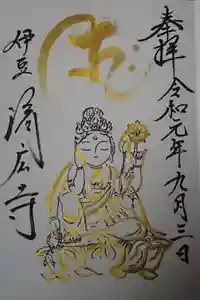 奉拝 令和元年九月三日
伊豆
済広寺